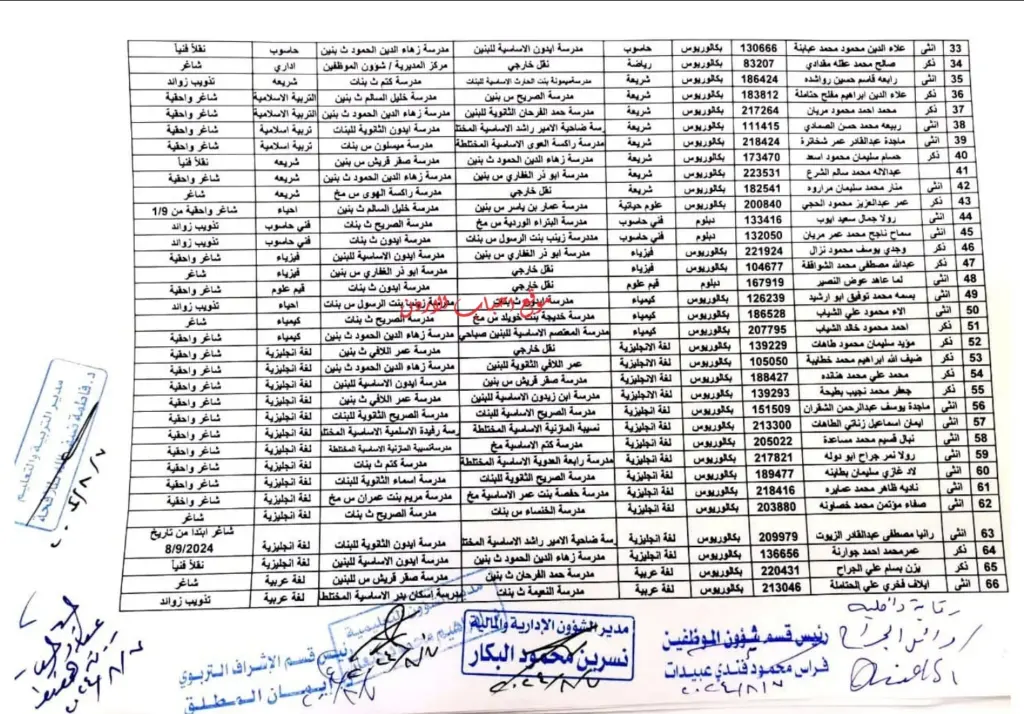 33 انثى علاء الدين محمود محمد عبابنة 130666 بكالوريوس حاسوب مدرسة ايدون الاساسية للبنين مدرسة زهاء الدين الحمود ث بنين حاسوب نقلاً فنياً
34 ذكر صالح محمد عقله مقدادي 83207 بكالوريوس رياضة نقل خارجي مركز المديرية / شؤون الموظفين اداري شاغر
35 انثى رابعه قاسم حسين رواشده 186424 بكالوريوس شريعة مدرسة ميمونة بنت الحارث الاساسية للبنات مدرسة كتم ث بنات شريعه تذويب زوائد
36 ذكر علاء الدين ابراهيم مفلح حتاملة 183812 بكالوريوس شريعة مدرسة الصريح س بنين مدرسة خليل السالم ث بنين التربية الاسلامية شاغر واحقية
37 ذكر محمد احمد محمود مريان 217264 بكالوريوس شريعة مدرسة حمد الفرحان الثانوية للبنين مدرسة زهاء الدين الحمود ث بنين التربية الاسلامية شاغر واحقية
38 انثى ربيعه محمد حسن الصمادي 111415 بكالوريوس شريعة رسة ضاحية الامير راشد الاساسية المختلط مدرسة ايدون الثانوية للبنات تربية اسلامية شاغر واحقية
39 انثى ماجدة عبدالقادر عمر شخاترة 218424 بكالوريوس شريعة مدرسة راكسة الهوى الاساسية المختلطة مدرسة ميسلون س بنات تربية اسلامية شاغر واحقية
40 ذكر حسام سليمان محمود اسعد 173470 بكالوريوس شريعة مدرسة زهاء الدين الحمود ث بنين مدرسة صقر قريش س بنين شريعه نقلاً فنياً
41 عبدالاله محمد سالم الشرع 223531 بكالوريوس شريعة مدرسة ابو ذر الغفاري س بنين مدرسة زهاء الدين الحمود ث بنين شريعه شاغر واحقية
42 انثى منار محمد سليمان مراروه 182541 بكالوريوس شريعة نقل خارجي مدرسة راكسة الهوى س مخ شريعه شاغر
43 ذكر عمر عبدالعزيز محمود الحجي 200840 بكالوريوس علوم حياتية مدرسة عمار بن ياسر س بنين مدرسة خليل السالم ث بنين احياء شاغر واحقية من 1/9
44 انثى رولا جمال سعيد ايوب 133416 دبلوم فني حاسوب مدرسة البتراء الوردية س مخ مدرسة الصريح ث بنات فني حاسوب تذويب زوائد
45 انثى سماح ناجح محمد عمر مريان 132050 دبلوم فني حاسوب مددرسة زينب بنت الرسول س بنات مدرسة ايدون ث بنات فني حاسوب تذويب زوائد
46 ذكر وجدي يوسف محمود نزال 221924 بكالوريوس فيزياء مدرسة ابو ذر الغفاري س بنين مدرسة ايدون الاساسية للبنين فيزياء شاغر واحقية
47 ذكر عبدالله مصطفى محمد الشواقفة 104677 بكالوريوس فيزياء نقل خارجي مدرسة ابو ذر الغفاري س بنين فيزياء شاغر
48 انثى لما عاهد عوض النصير 167919 دبلوم قيم علوم نقل خارجي مدرسة ايدون ث بنات قيم علوم شاغر واحقية
49 انثى بسمه محمد توفيق ابو ارشيد 126239 بكالوريوس كيمياء مدرسة ايدون ث بنات مدرسة زينب بنت الرسول س بنات احياء تذويب زوائد
50 انثى الاء محمود علي الشياب 186528 بكالوريوس كيمياء مدرسة خديجة بنت خويلد س مخ مدرسة الصريح ث بنات كيمياء شاغر
51 ذكر احمد محمود خالد الشياب 207795 بكالوريوس كيمياء مدرسة المعتصم الاساسية للبنين صباحي مدرسة زهاء الدين الحمود ث بنين كيمياء شاغر واحقية
52 ذكر مؤيد سليمان محمود طاهات 139229 بكالوريوس لغة الانجليزية نقل خارجي مدرسة عمر اللافي ث بنين لغة انجليزية شاغر واحقية
53 ذكر ضيف الله ابراهيم محمد خطايبة 105050 بكالوريوس لغة الانجليزية عمر اللافي الثانوية للبنين مدرسة زهاء الدين الحمود ث بنين لغة انجليزية شاغر واحقية
54 ذكر محمد علي محمد هنانده 188427 بكالوريوس لغة الانجليزية مدرسة صقر قريش س بنين مدرسة ايدون الاساسية للبنين لغة انجليزية شاغر واحقية
55 ذكر جعفر محمد نجيب بطيحة 139293 بكالوريوس لغة الانجليزية مدرسة ابن زيدون الاساسية للبنين مدرسة عمر اللافي ث بنين لغة انجليزية شاغر واحقية
56 انثى ماجدة يوسف عبدالرحمن الشقران 151509 بكالوريوس لغة انجليزية مدرسة الصريح الاساسية للبنات مدرسة الصريح الثانوية للبنات لغة انجليزية شاغر واحقية
57 انثى ايمان اسماعيل زناتي الطاهات 213300 بكالوريوس لغة انجليزية نسيبة المازنية الاساسية المختلطة رسة رفيدة الاسلمية الاساسية المختلط لغة انجليزية شاغر واحقية
58 انثى نهال قسيم محمد مساعدة 205022 بكالوريوس لغة انجليزية مدرسة كتم الاساسية مخ مدرسة نسيبة المازنية الاساسية المختلطة لغة انجليزية شاغر واحقية
59 انثى رولا نمر جراح ابو دوله 217821 بكالوريوس لغة انجليزية مدرسة رابعة العدوية الاساسية المختلطة مدرسة كتم ث بنات لغة انجليزية شاغر واحقية
60 انثى لاد غازي سليمان بطاينه 189477 بكالوريوس لغة انجليزية مدرسة الصريح الثانوية للبنات مدرسة اسماء الثانوية للبنات لغة انجليزية شاغر واحقية
61 انثى ناديه ظاهر محمد عمايره 218416 بكالوريوس لغة انجليزية مدرسة حفصة بنت عمر الاساسية مخ مدرسة مريم بنت عمران س مخ لغة انجليزية شاغر واحقية
62 انثى صفاء مؤتمن محمد خصاونه 203880 بكالوريوس لغة انجليزية مدرسة الخنساء س بنات مدرسة الصريح ث بنات لغة انجليزية شاغر
63 انثى رانيا مصطفى عبدالقادر الزيوت 209979 بكالوريوس لغة انجليزية رسة ضاحية الامير راشد الاساسية المختلط مدرسة ايدون الثانوية للبنات لغة انجليزية شاغر ابتدا من تاريخ 8/9/2024
64 ذكر عمرمحمد احمد جوارنة 136656 بكالوريوس لغة انجليزية مدرسة زهاء الدين الحمود ث بنين مدرسة ايدون الاساسية للبنين لغة انجليزية نقلاً فنياً
65 ذكر يزن بسام علي الجراح 220431 بكالوريوس لغة عربية مدرسة حمد الفرحان ث بنين مدرسة صقر قريش س بنين لغة عربية شاغر
66 انثى ايلاف فخري علي الحتاملة 213046 بكالوريوس لغة عربية مدرسة النعيمة ث بنات مدرسة إسكان بدر الاساسية المختلط لغة عربية تذويب زوائد
مدير التربية والتعليم
رقابة داخلية
وائل الجراح
رئيس قسم شؤون الموظفين
فراس محمود فندي عبيدات
٢٠٢٤/٨/٧
مدير الشؤون الإدارية والمالية
نسرين محمود البكار
٢٠٢٤/٨/٧
مدير الشؤون التعليمية
رئيس قسم الإشراف التربوي
د. إيمان المطلق